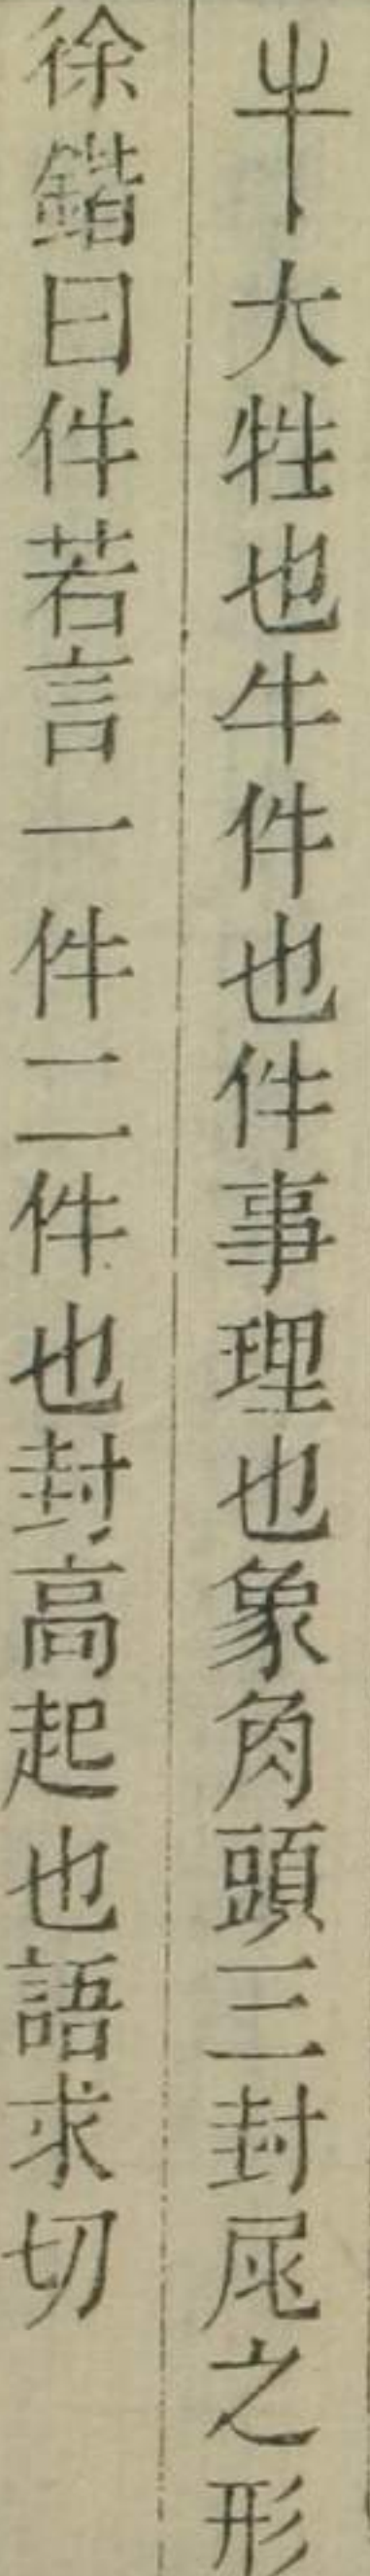 牛大牲也牛件也件事理也象角頭三封𡰣之形
徐鍇曰件若言一件二件也封高起也語求切